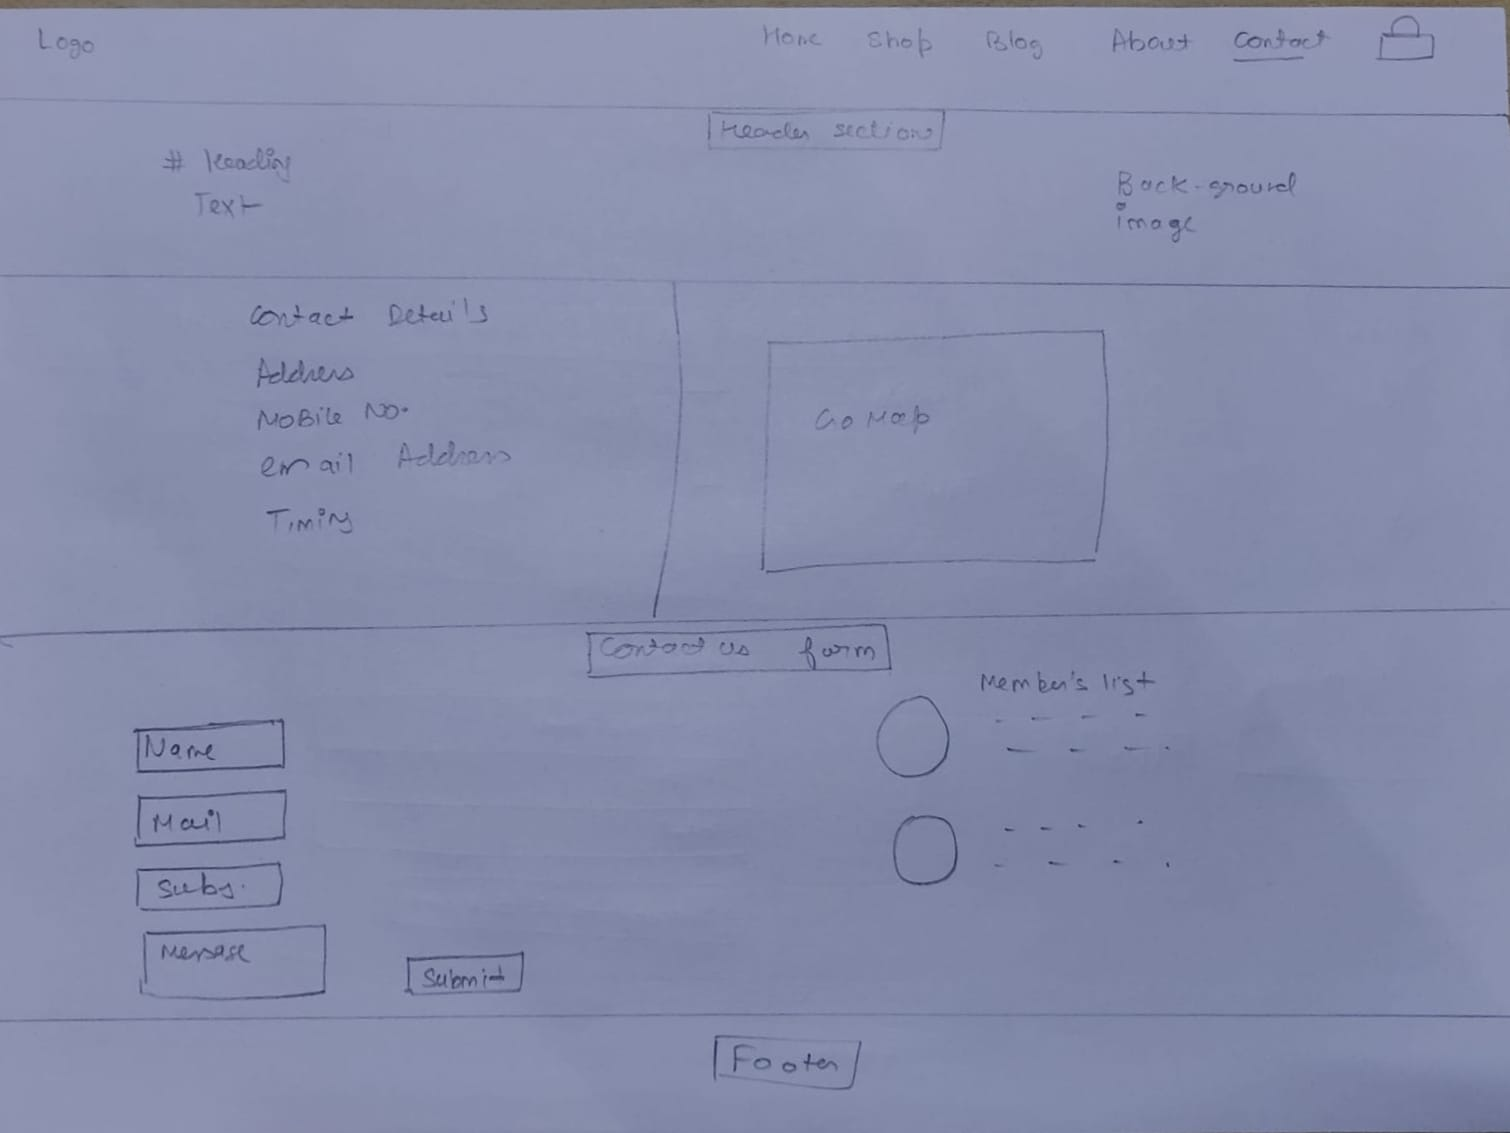 Logo
Home Shop Blog About Contact
Header section
# Heading
Text
Back-ground
image
Contact Details
Address
Mobile No.
email Address
Timing
Go Map
Contact us form
Member's list
Name
Mail
Subj.
Message
Submit
Footer